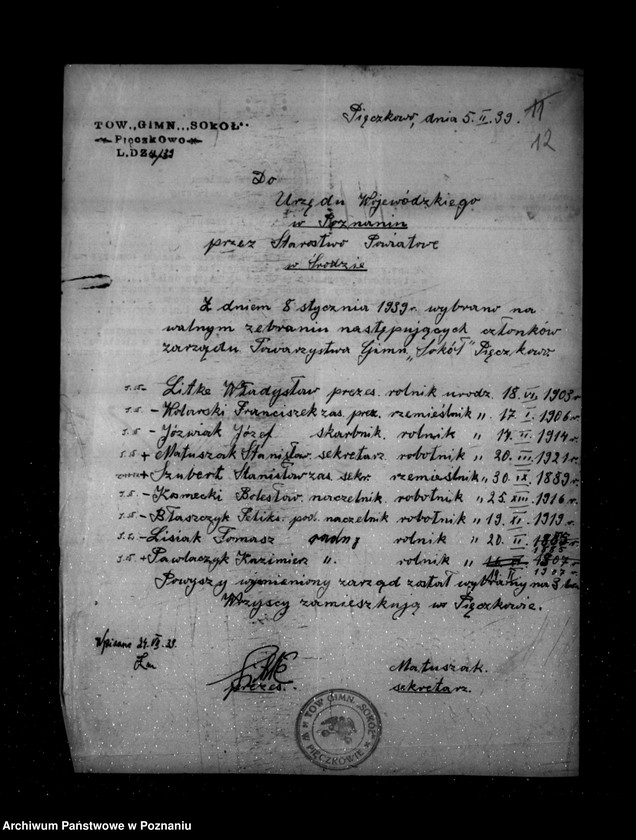 TOW. „GIMN. „SOKÓŁ"
Pięczkowo
L.DZ 4/39
Pięczkowo, dnia 5. II. 39.
11
12
Do
Urzędu Wojewódzkiego
w Poznaniu
przez Starostwo Powiatowe
w Środzie
Z dniem 8 stycznia 1939 r. wybrano na
walnym zebraniu następujących członków
zarządu Towarzystwa Gimn. „Sokół" Pięczkowo
- Litke Władysław prezes. rolnik urodz. 18. VI. 1903 r.
- Wolarski Franciszek zas. prez. rzemieślnik „ 17. I. 1906 r.
- Jóźwiak Józef skarbnik. rolnik „ 14. II. 1914 r.
+ Matuszak Stanisław. sekretarz. robotnik „ 20. III. 1921 r.
+ Szubert Stanisław zas. sekr. rzemieślnik „ 30. IX. 1889 r.
- Komecki Bolesław. naczelnik. robotnik „ 25. XIII. 1916 r.
- Błaszczyk Feliks. pod. naczelnik robotnik „ 19. XI. 1919 r.
- Lisiak Tomasz radny rolnik „ 20. II.
1885
+ Pawlaczyk Kazimierz „. rolnik „
1907 r.
Powyszy wymieniony zarząd został wybramy na 3 lata
Wszyscy zamieszkują w Pięczkowie.
Wpisano 24. VI. 39.
prezes.
Matuszak.
sekretarz.
TOW GIMN. „SOKÓŁ"
W PIĘCZKOWIE
Archiwum Państwowe w Poznaniu